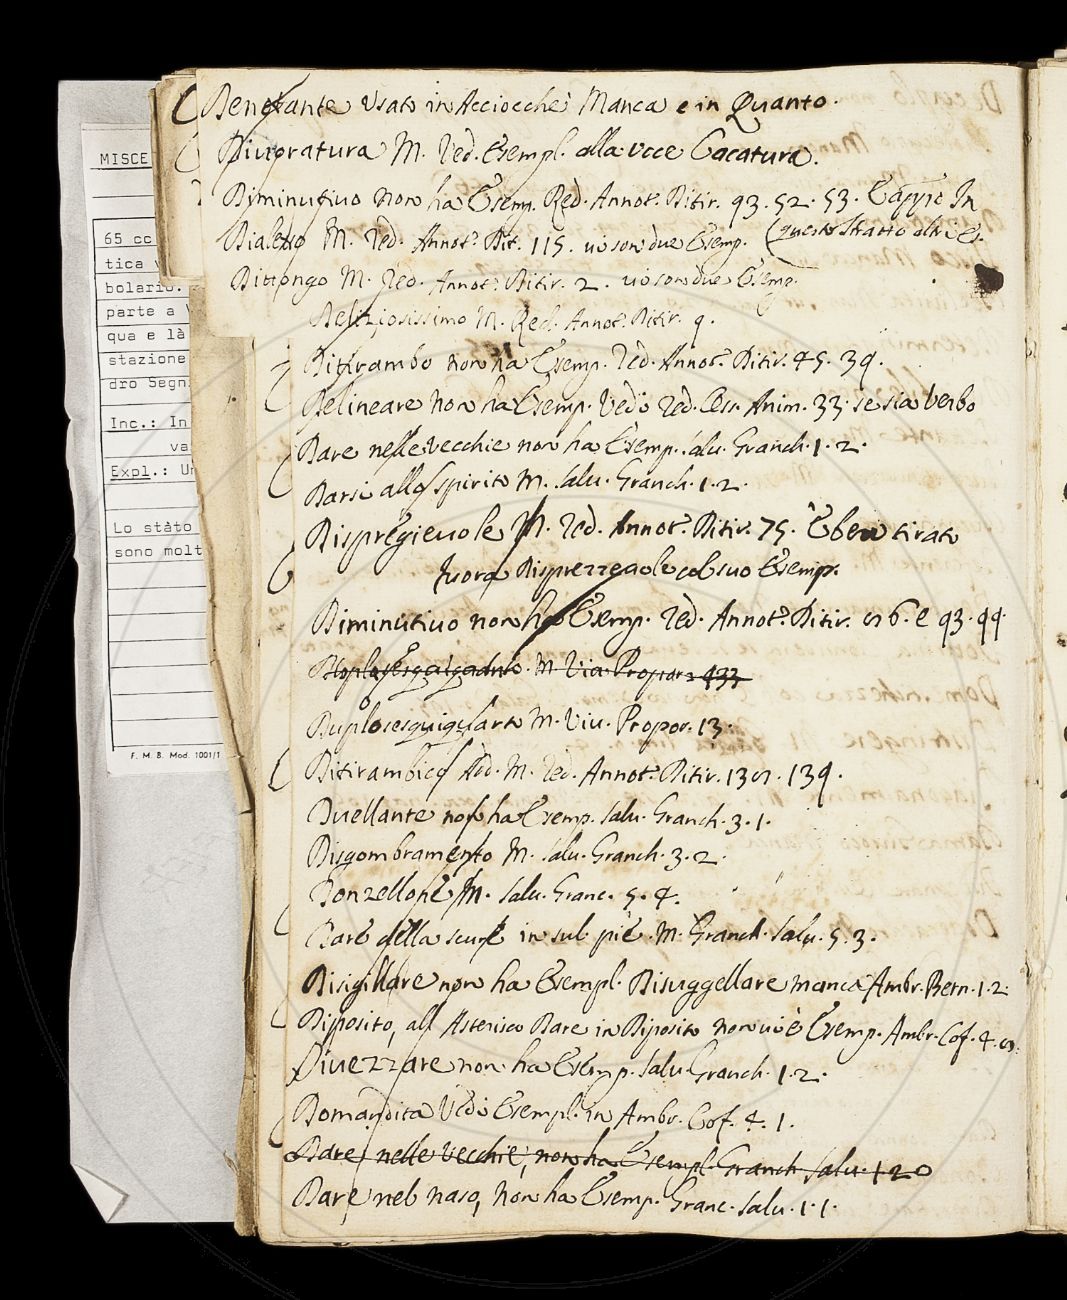 MISCE
65 cc
tica v
bolario.
parte a V
qua e là
stazione
dro Segn
Inc.: In
va
Expl.: Un
Lo stàto
sono molt
F. M. B. Mod. 1001/1
Usato in Acciocchè Manca e in Quanto.
Divoratura M. Red. Esempl. alla voce Cacatura.
Diminutivo non ha Esemp. Red. Annot. Ditir. 93. 52. 53. In
Dialetto M. Red. Annot. Dit. 115. vi son due Esemp.
Dittongo M. Red. Annot. Ditir. 2. vi son due Esemp.
Deliziosissimo M. Red. Annot. Ditir. 9.
Ditirambo non ha Esemp. Red. Annot. Ditir. 45. 39.
Delineare Non ha Esemp. Vedi Red. Oss. Anim. 33. se sia Verbo
Dare nelle vecchie non ha Esemp. Salv. Granch. 1. 2.
Darsi allo spirito M. Salv. Granch. 1. 2.
Dispregievole M. Red. Annot. Ditir. 75. E ben tirato
fuora Disprezzevole col suo Esemp.
Diminutivo non ha Esemp. Red. Annot. Ditir. 6. e 93. 99.
M. Viv. Propor. 133
Duplosesquiquarto M. Viv. Propor. 13.
Ditirambico Add. M. Red. Annot. Ditir. 139.
Duellante non ha Esemp. Salv. Granch. 3. 1.
Disgombramento M. Salv. Granch. 3. 2.
Donzellone M. Salv. Granc. 5. 4.
Dare della scure in sul piè. M. Granch. Salv. 5. 3.
Disigillare non ha Esempl. Disuggellare manca Ambr. Bern. 1. 2.
Diposito, all Asterisco Dare in Diposito non vi è Esemp. Ambr. Cof. 4.
Divezzare non ha Esemp. Salv. Granch. 1. 2.
Domandita Vedi Esempl. in Ambr. Cof. 4. 1.
Dare nelle vecchie, non ha Esempl. Granch. Salv. 1 2
Dare nel naso, Non ha Esemp. Granc. Salv. 1. 1.